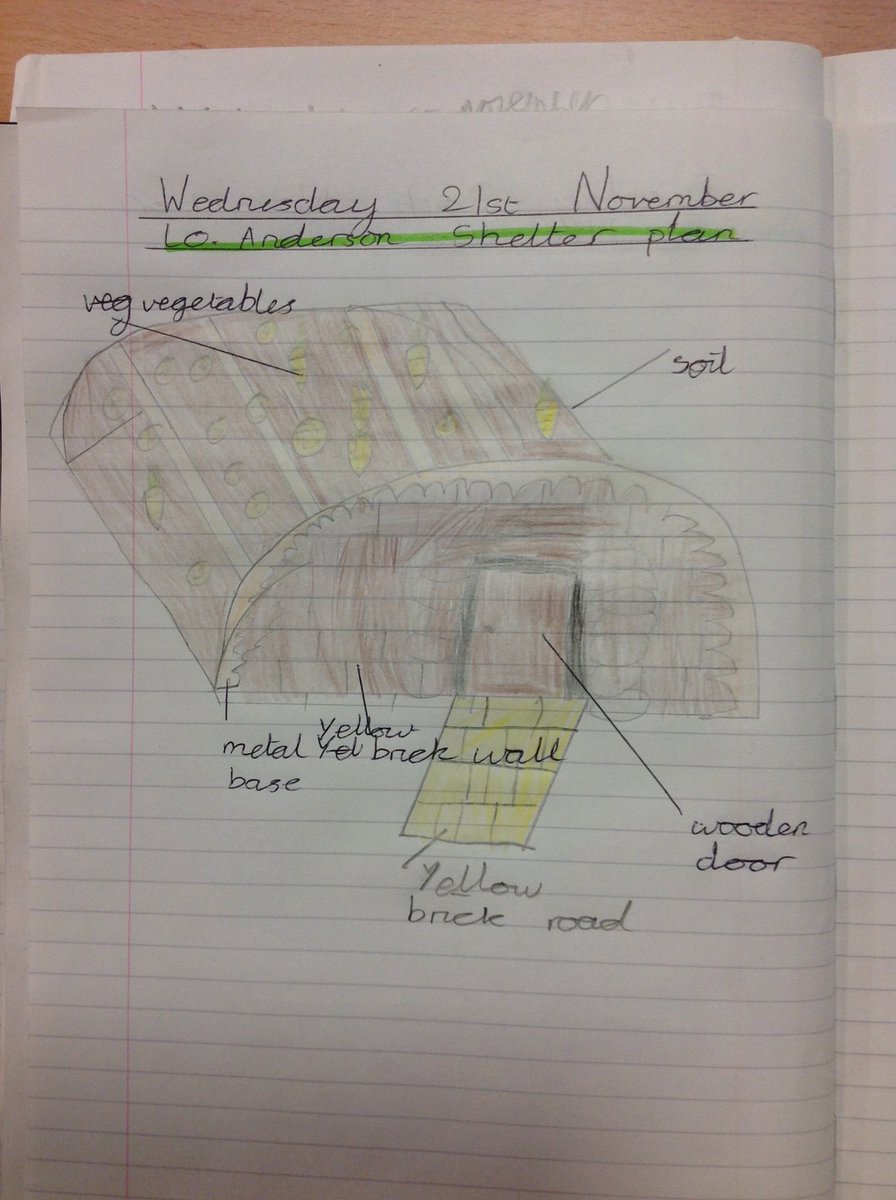 november
Wednesday 21st November
LO. Anderson Shelter plan
veg vegetables
soil
yellow
metal Yel brick wall
base
wooden
door
Yellow
brick road